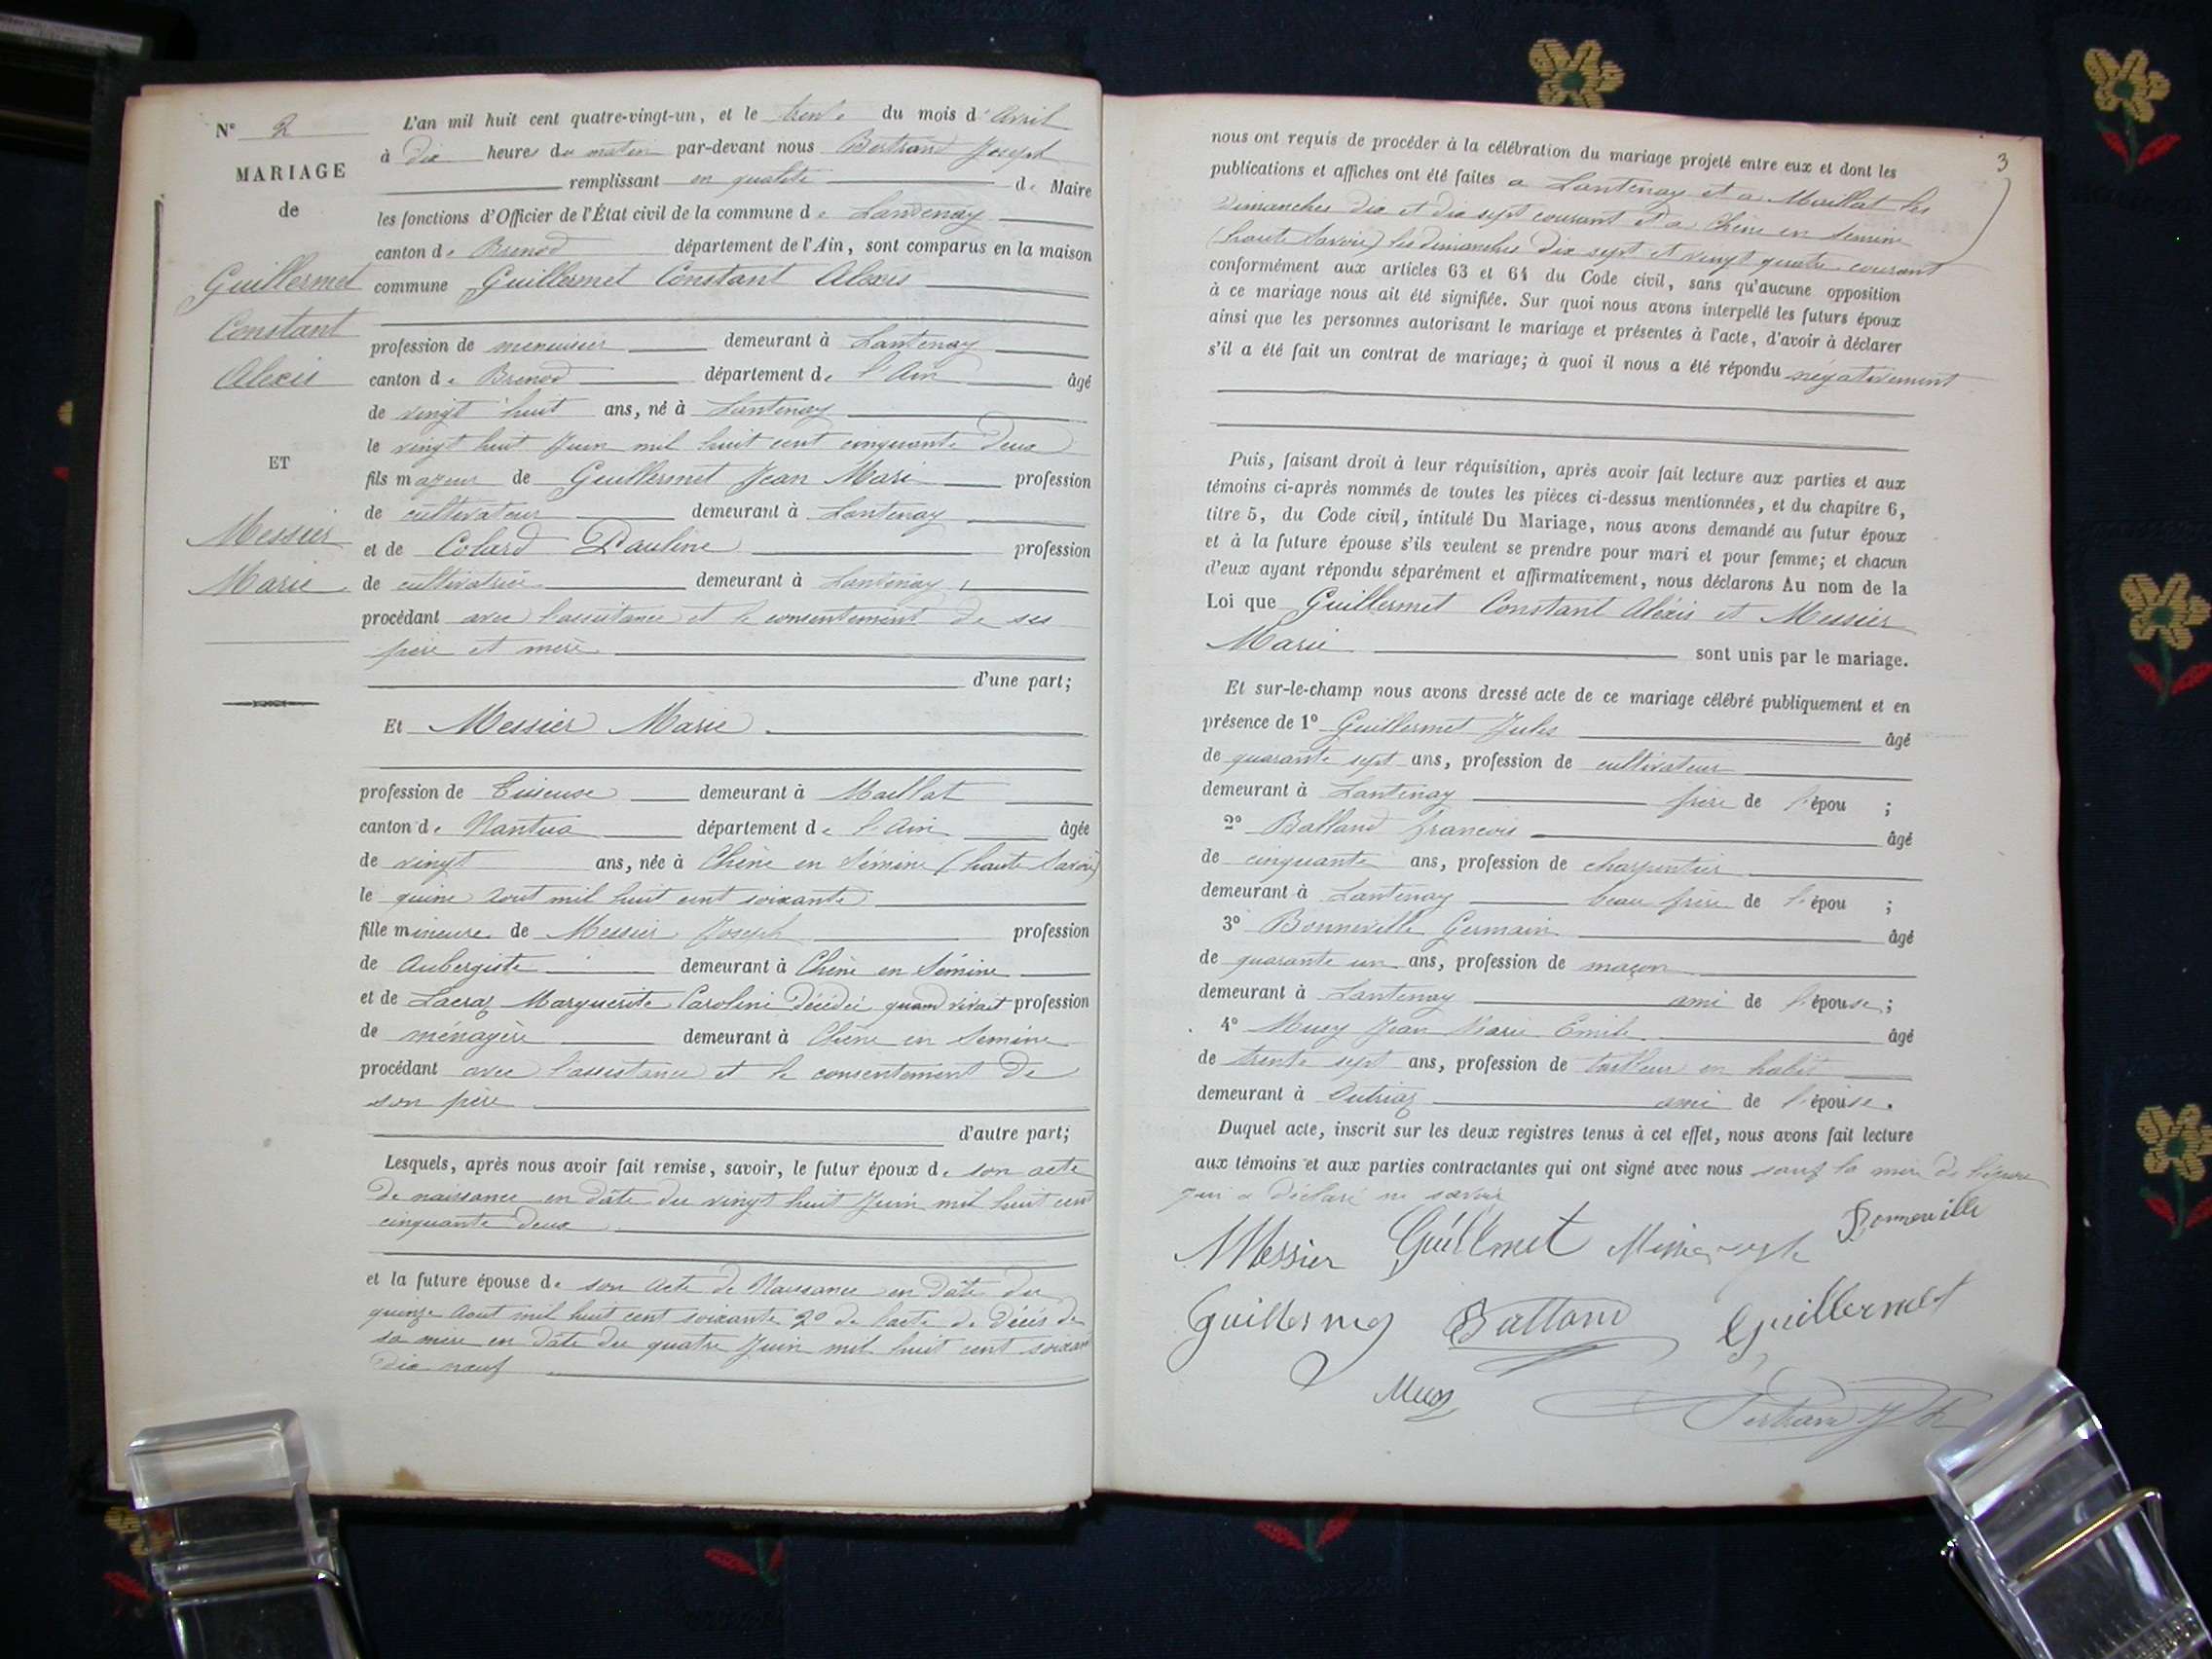 N° 2
MARIAGE
de
Guillermet
Constant
Alexis
ET
Messier
Marie
L'an mil huit cent quatre-vingt-un, et le trente du mois d'Avril
à dix heures du matin par-devant nous Bertrand Joseph
remplissant en qualité de Maire
les fonctions d'Officier de l'État civil de la commune de Lantenay
canton de Brenod département de l'Ain, sont comparus en la maison
commune Guillermet Constant Alexis
profession de menuisier demeurant à Lantenay
canton de Brenod département de l'Ain âgé
de vingt huit ans, né à Lantenay
le vingt huit Juin mil huit cent cinquante deux
fils majeur de Guillermet Jean Marie profession
de cultivateur demeurant à Lantenay
et de Colard Pauline profession
de cultivatrice demeurant à Lantenay
procédant avec l'assistance et le consentement de ses
père et mère
d'une part;
Et Messier Marie
profession de Tisseuse demeurant à Maillat
canton de Nantua département de l'Ain âgée
de vingt ans, née à Chêne en Sémine (haute Savoie)
le quinze Aout mil huit cent soixante
fille mineure de Messier Joseph profession
de Aubergiste demeurant à Chêne en Sémine
et de Lacraz Marguerite Caroline décédée quand vivait profession
de ménagère demeurant à Chêne en Semine
procédant avec l'assistance et le consentement de
son père
d'autre part;
Lesquels, après nous avoir fait remise, savoir, le futur époux de son acte
de naissance en date du vingt huit Juin mil huit cent
cinquante deux
et la future épouse de son acte de Naissance en date du
quinze Aout mil huit cent soixante 2° de l'acte de décès de
sa mère en date du quatre Juin mil huit cent soixante
dix neuf
3
nous ont requis de procéder à la célébration du mariage projeté entre eux et dont les
publications et affiches ont été faites a Lantenay et a Maillat les
dimanches dix et dix sept courant et a Chêne en Semine
(haute Savoie) les dimanches dix sept et vingt quatre courant
conformément aux articles 63 et 64 du Code civil, sans qu'aucune opposition
à ce mariage nous ait été signifiée. Sur quoi nous avons interpellé les futurs époux
ainsi que les personnes autorisant le mariage et présentes à l'acte, d'avoir à déclarer
s'il a été fait un contrat de mariage; à quoi il nous a été répondu négativement
Puis, faisant droit à leur réquisition, après avoir fait lecture aux parties et aux
témoins ci-après nommés de toutes les pièces ci-dessus mentionnées, et du chapitre 6,
titre 5, du Code civil, intitulé Du Mariage, nous avons demandé au futur époux
et à la future épouse s'ils veulent se prendre pour mari et pour femme; et chacun
d'eux ayant répondu séparément et affirmativement, nous déclarons Au nom de la
Loi que Guillermet Constant Alexis et Messier
Marie sont unis par le mariage.
Et sur-le-champ nous avons dressé acte de ce mariage célébré publiquement et en
présence de 1° Guillermet Jules âgé
de quarante sept ans, profession de cultivateur
demeurant à Lantenay frère de l'épou ;
2° Balland francois âgé
de cinquante ans, profession de charpentier
demeurant à Lantenay beau frère de l'épou ;
3° Bonneville Germain âgé
de quarante un ans, profession de maçon
demeurant à Lantenay ami de l'épouse;
4° Muey Jean Marie Emile âgé
de trente sept ans, profession de tailleur en habit
demeurant à Outriaz ami de l'épouse.
Duquel acte, inscrit sur les deux registres tenus à cet effet, nous avons fait lecture
aux témoins et aux parties contractantes qui ont signé avec nous sauf la mère de l'époux
qui a déclaré ne savoir
M Messier Guillmet Bonneville
Guillermet Balland Guillermet
Bertrand